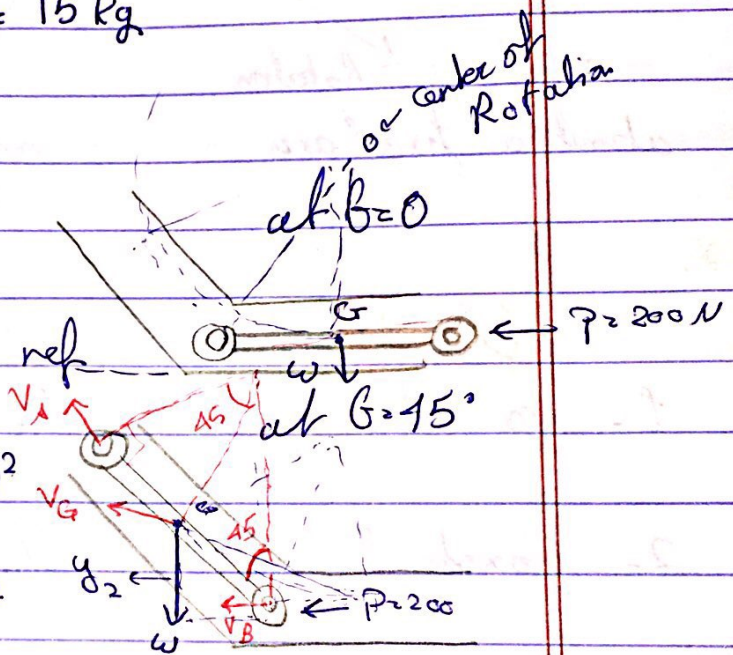 = 15 kg
O ← center of
Rotation
at θ=0
G
← P=200N
ref
ω
V_A
45
at θ=45°
2
V_G
G
45
y₂
← P=200
V_B
ω